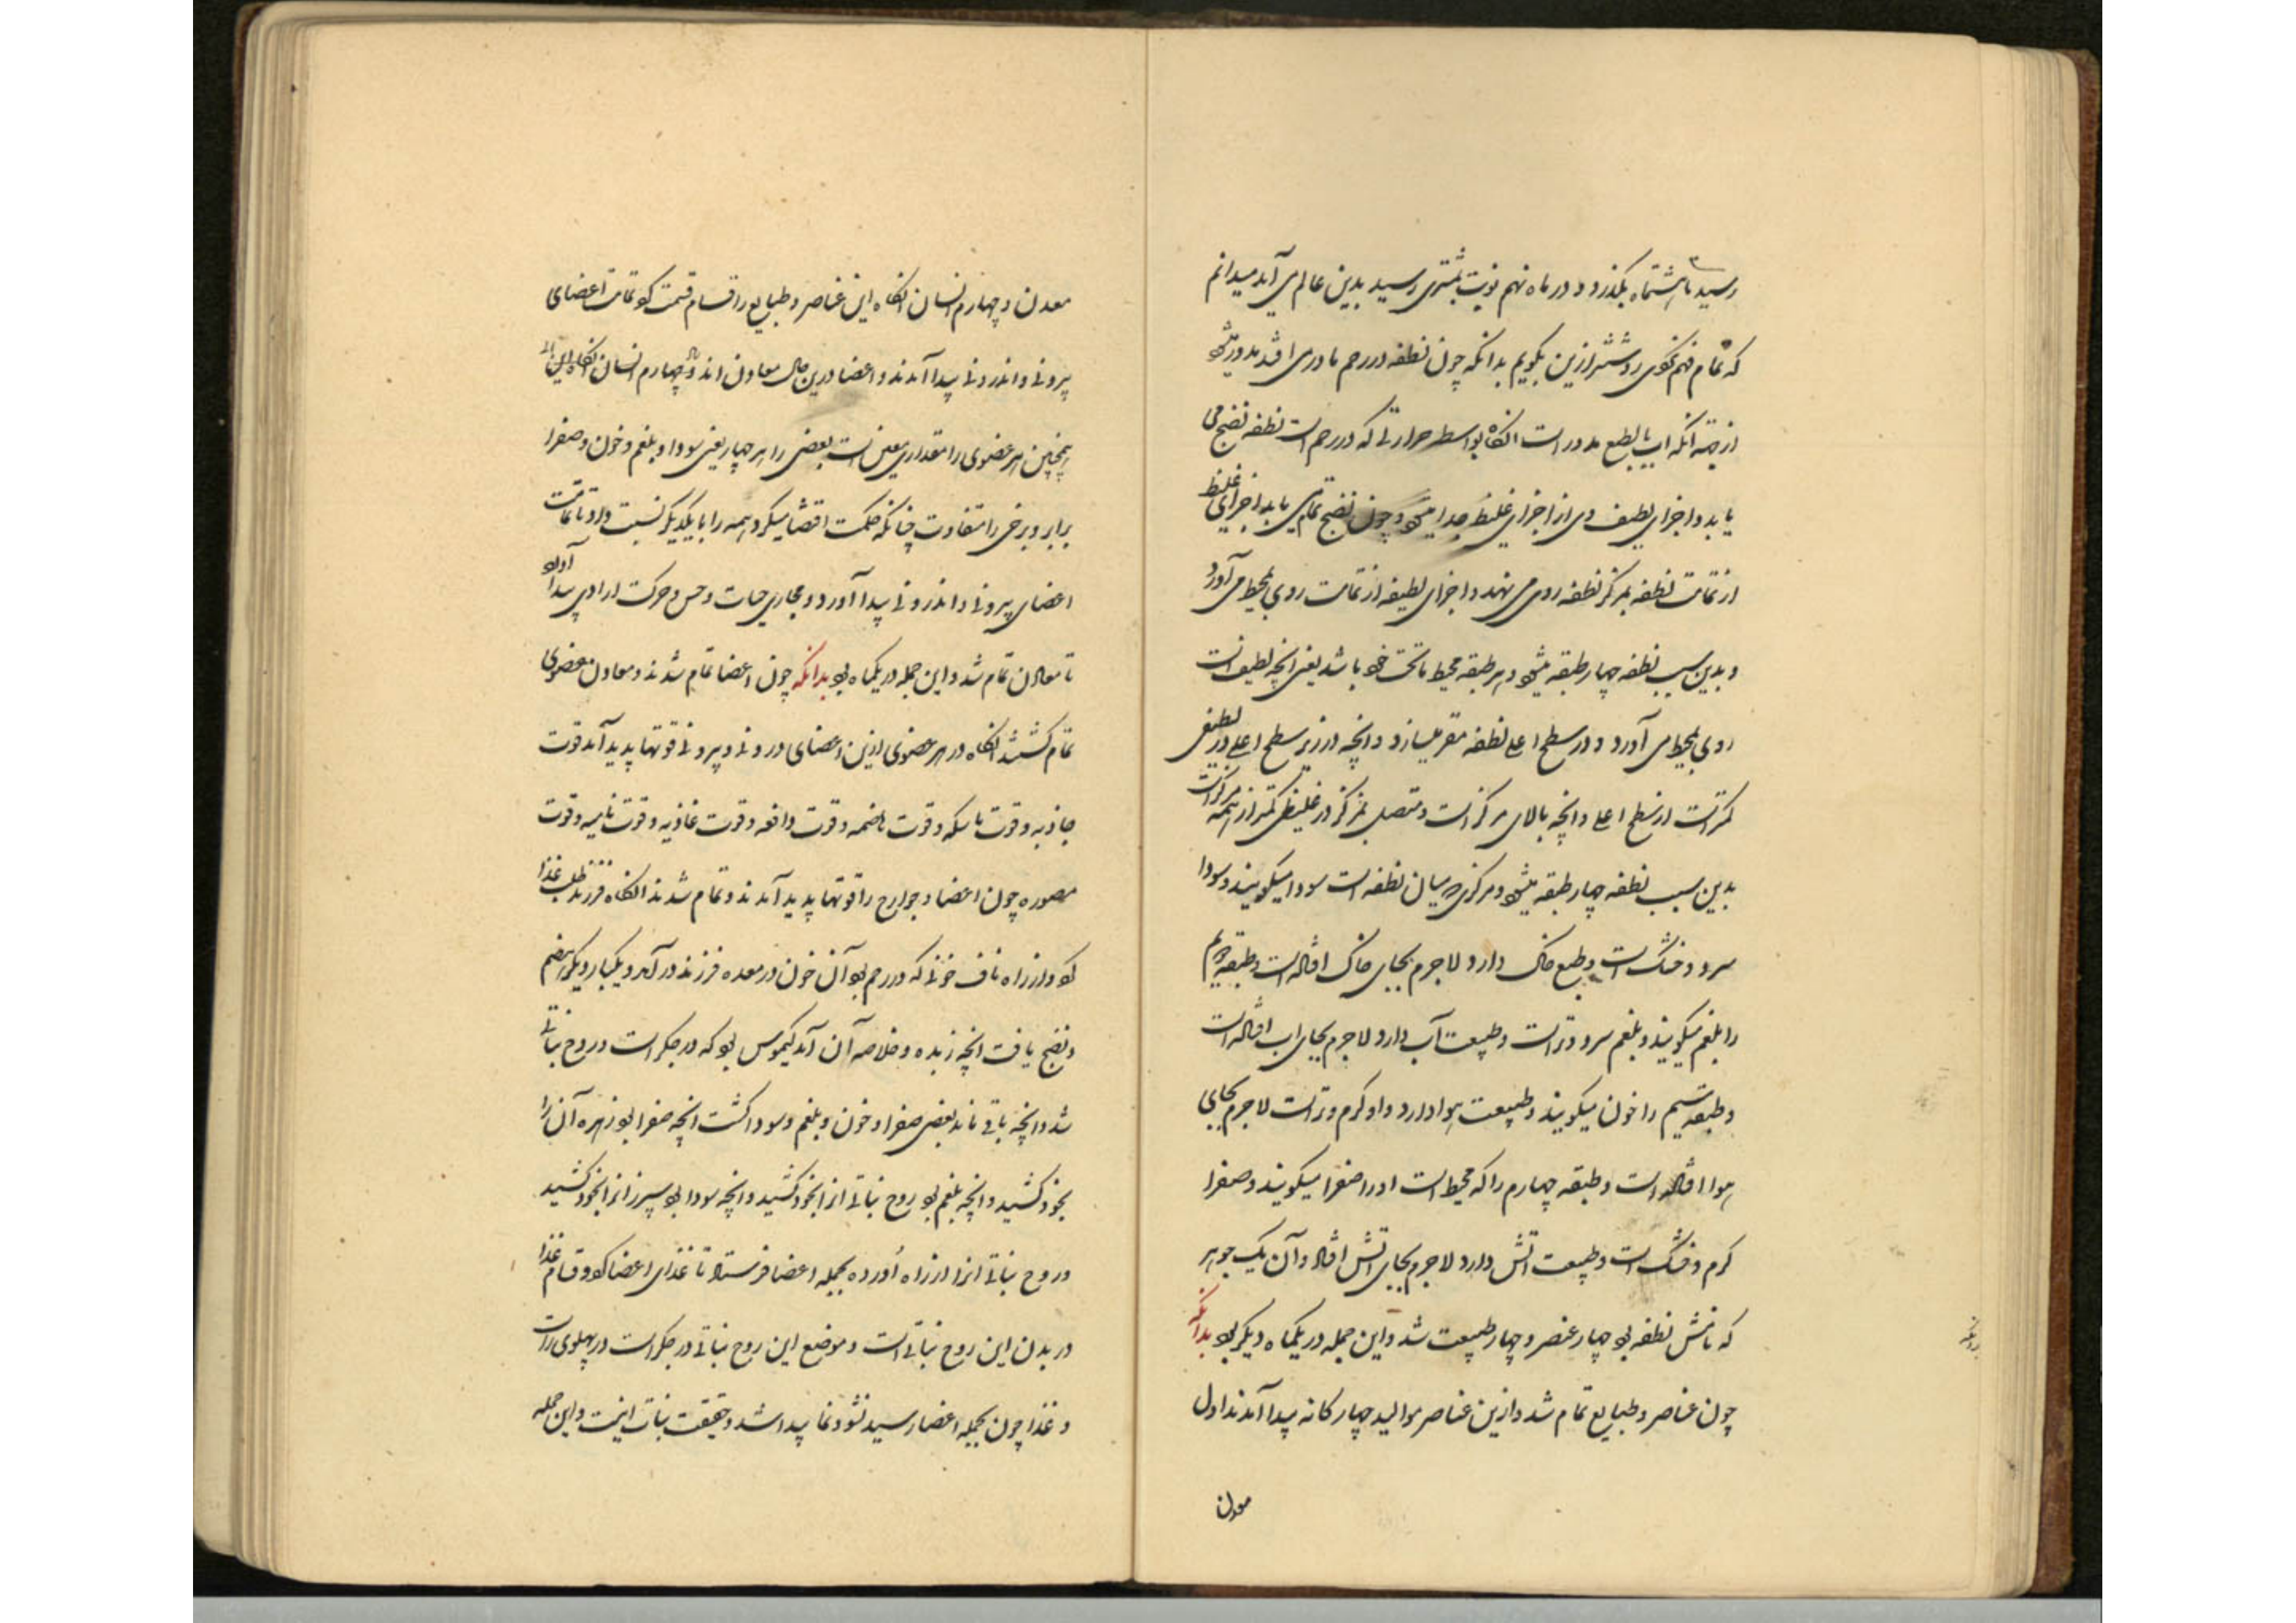 رسید تا هشتماه بگذرد و در ماه نهم نوبت بمشتری رسید بدین عالم می آید میدانم
که تمام فهم نکوی روشنتر ازین بگویم بدانکه چون نطفه در رحم مادر می افتد مدور میشود
از جهة آنکه آب بالطبع مدور است آنکاه بواسطه حرارتی که در رحم است نطفه نضج می
یابد و اجزای لطیف وی از اجزای غلیظ جدا میشود و چون نضج تمام می یابد اجزای غلیظ
از تمامت نطفه بمرکز نطفه روی می نهد و اجزای لطیفه از تمامت روی بمحیط می آورد
و بدین سبب نطفه چهار طبقه میشود و هر طبقه محیط ماتحت خود باشد یعنی آنچه لطیف است
روی بمحیط می آورد و در سطح اعلی نطفه مقر میسازد و آنچه در زیر سطح اعلی در لطیفی
کمتر است از سطح اعلی و آنچه بالای مرکز است و متصل بمرکز در غلیظی کمتر از همه مرکز است
بدین سبب نطفه چهار طبقه میشود و مرکز که میان نطفه است سودا میکویند و سودا
سرد و خشک است و طبع خاک دارد لاجرم بجای خاک افتاده است و طبقه دویم
را بلغم میکویند و بلغم سرد و تر است و طبیعت آب دارد لاجرم بجای اب افتاده است
و طبقه سیم را خون میکویند و طبیعت هوا دارد و او کرم و تر است لاجرم بجای
هوا افتاده است و طبقه چهارم را که محیط است او را صفرا میکویند و صفرا
کرم و خشک است و طبیعت آتش دارد لاجرم بجای آتش افتاد و آن یک جوهر
که نامش نطفه بود چهار عنصر و چهار طبیعت شد و این جمله در یکماه دیکر بود بدانکه
چون عناصر و طبایع تمام شد و ازین عناصر موالید چهار کانه پیدا آمدند اول
معدن
معدن و چهارم انسان آنکاه این عناصر و طبایع را قسام قسمت کرد تمامت اعضای
بیرونی و اندرونی پیدا آمدند و اعضا درین حال معادن اند و چهارم انسان آنکاه این
همچنین هر عضوی را مقداری معین است بعضی را هر چهار یعنی سودا و بلغم و خون و صفرا
برابر و برخی را متفاوت چنانکه حکمت اقتضا میکرد و همه را با یکدیکر نسبت داد تا تمامت
اعضای بیرونی و اندرونی پیدا آورد و مجاری حیات و حس و حرکت ارادی پیدا آورد
تا معادن تمام شد و این جمله در یکماه بود بدانکه چون اعضا تمام شدند و معادن هر عضوی
تمام کشتند آنکاه در هر عضوی ازین اعضای درونی و بیرونی قوتها پدید آمد قوت
جاذبه و قوت ماسکه و قوت هاضمه و قوت دافعه و قوت غاذیه و قوت نامیه و قوت
مصوره چون اعضا و جوارح را قوتها پدید آمدند و تمام شدند آنکاه فرزند طلب غذا
کرد و از راه ناف خونی که در رحم بود آن خون در معده فرزند درآمد و یکبار دیکر هضم
و نضج یافت آنچه زبده و خلاصه آن آمد کیموس بود که در جکر است و روح نباتی
شد و آنچه باقی ماند بعضی صفرا و خون و بلغم و سودا کشت آنچه صفرا بود زهره آن را
بخود کشید و آنچه بلغم بود روح نباتی آنرا بخود کشید و آنچه سودا بود سپرز آنرا بخود کشید
و روح نباتی آنرا از راه اورده بجمله اعضا فرستاد تا غذای اعضا کرد و قسام غذا
در بدن این روح نباتی است و موضع این روح نباتی در جکر است در پهلوی راست
و غذا چون بجمله اعضا رسید نشو و نما پیدا شد و حقیقت نبات اینست و این جمله